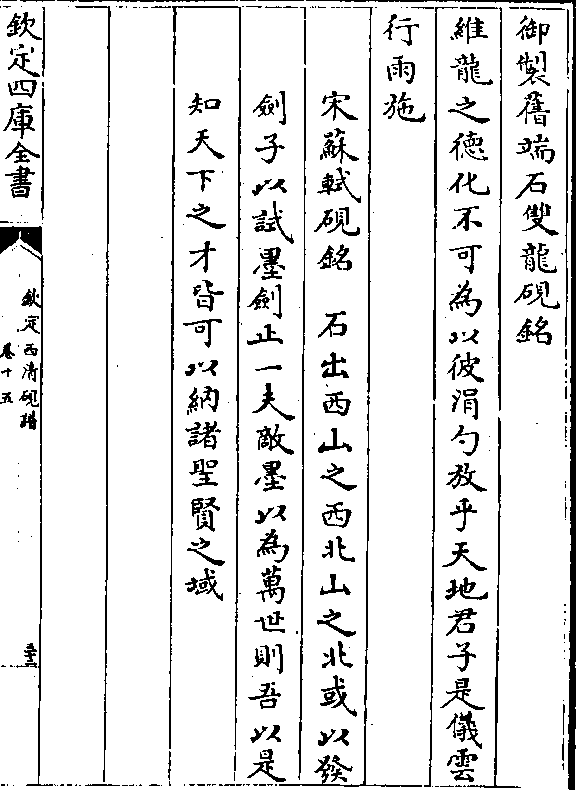 御製舊端石雙龍硯銘
維龍之德化不可為以彼涓勺放乎天地君子是儀雲
行雨施
宋蘇軾硯銘　石出西山之西北山之北或以發
劍子以試墨劍止一夫敵墨以為萬世則吾以是
知天下之才皆可以納諸聖賢之域
欽定四庫全書
欽定西清硯譜
卷十五